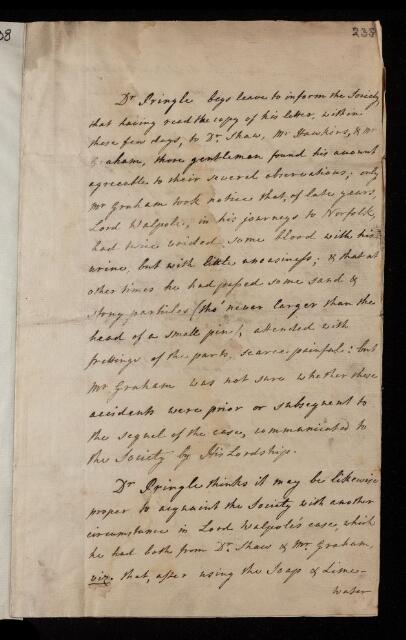 38
238
Dr. Pringle begs leave to inform the Society,
that having read the copy of his letter, within
these few days, to Dr. Shaw, Mr Hawkins, & Mr
Graham, those gentlemen found his account
agreeable to their several observations; only
Mr Graham took notice that, of late years,
Lord Walpole, in his journeys to Norfolk,
had twice voided some blood with his
urine, but with little uneasiness; & that at
other times he had passed some sand &
stony particles (tho' never larger than the
head of a small pin), attended with
frettings of the parts, scarce painful: but
Mr Graham was not sure whether these
accidents were prior or subsequent to
the sequel of the case, communicated to
the Society by His Lordship.
Dr. Pringle thinks it may be likewise
proper to acquaint the Society with another
circumstance in Lord Walpole's case, which
he had both from Dr. Shaw & Mr. Graham,
viz. that, after using the Soap & Lime-
water